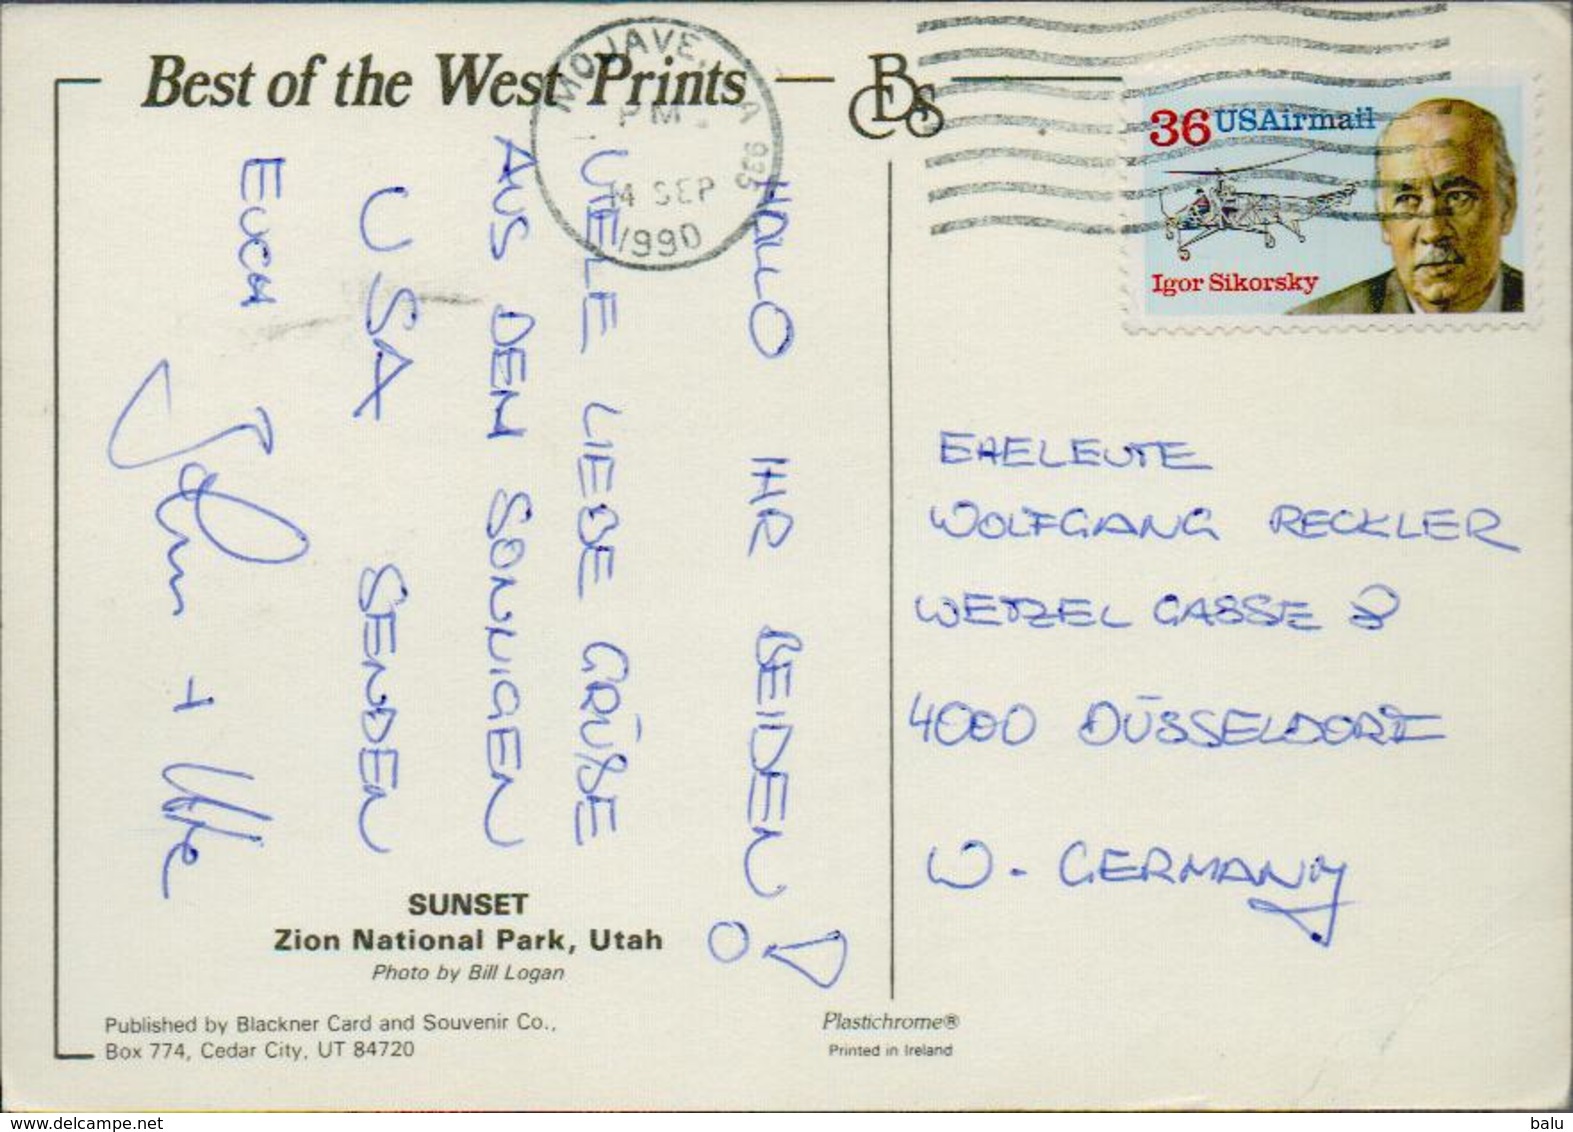 Best of the West Prints
CBS
MOJAVE, CA 935
PM
14 SEP
1990
36 USAirmail
Igor Sikorsky
HALLO IHR BEIDEN!
VIELE LIEBE GRÜßE
AUS DEM SONNIGEN
USA SENDEN
EUCH
+ Uke
EHELEUTE
WOLFGANG RECKLER
WETZEL GASSE 8
4000 DÜSSELDORF
W-GERMANY
SUNSET
Zion National Park, Utah
Photo by Bill Logan
Published by Blackner Card and Souvenir Co.,
Box 774, Cedar City, UT 84720
Plastichrome®
Printed in Ireland
www.delcampe.net
balu